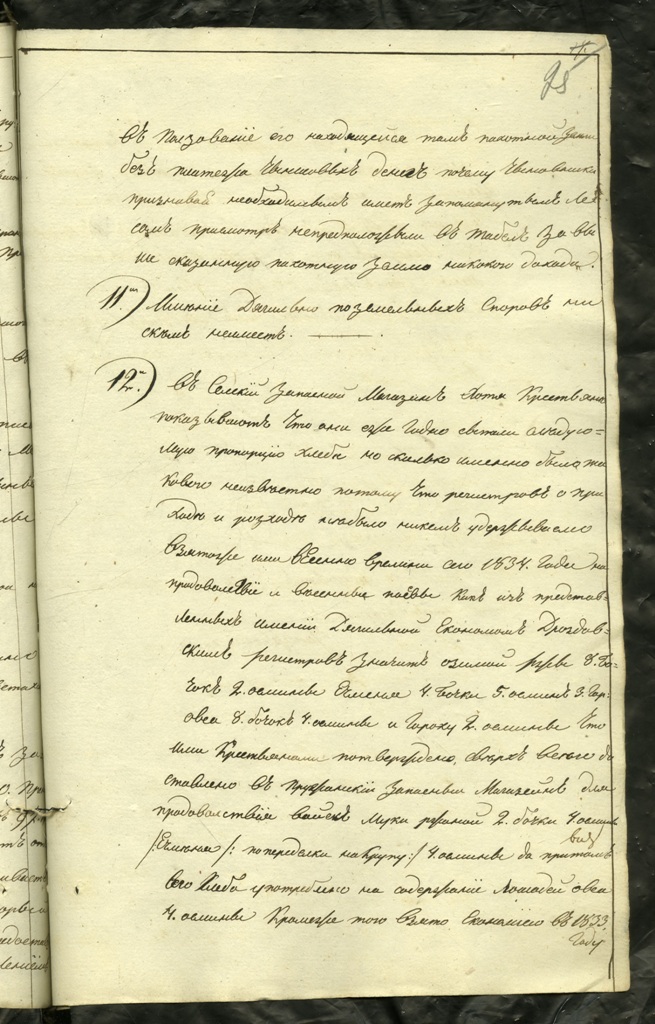 98
въ ползованіе его находящейся тамъ пахотной Земли
безъ платежа Чыншовыхъ денегъ почему Чыновники
признавая необходимымъ иметь Запомянутымъ Ле=
сомъ присмотръ непредположили въ табель За вы
ше сказанную пахотную Землю никокого дохода.
11.) Мненіе Дягильно поземельныхъ Споровъ ни
скемъ неимеетъ.
12.) Въ Селскій Запасной Магазинъ Хотя Крестьяне
показываютъ Что они еже Годно свъ следую=
мую пропорцію хлеба но сколько именно было та
кового неизвестно потому Что регистровъ о при
ходе и розходе небыло никемъ удерживаемо
Взятоже ими Весенно времени сего 1834. Года на
продоволствіе и весенныя посевы Какъ изъ представ
ленныхъ именіи Дягильной Економомъ Дроздов=
скимъ регистровъ Значитъ озимой ржи 8. бо=
чокъ 2. осмины Ячменя 4. бочки 5. осминъ 3. Гар
овса 8. бочокъ 4. осмины и Гороху 2. осмины Что
ими Крестьянами потверждено, сверхъ Сего до
ставлено въ пружанскій Запасный Магазейнъ для
продоволствія войскъ Муки ржаной 2. бочки 4 осмины
/:Ячменя /: попеределки на Крупу:/ 4. осмины да притомъ
Сего хлеба употреблено на содержаніе Лошадей овса
4. осмины Кромеже того Взято Економіею въ 1833.
Году